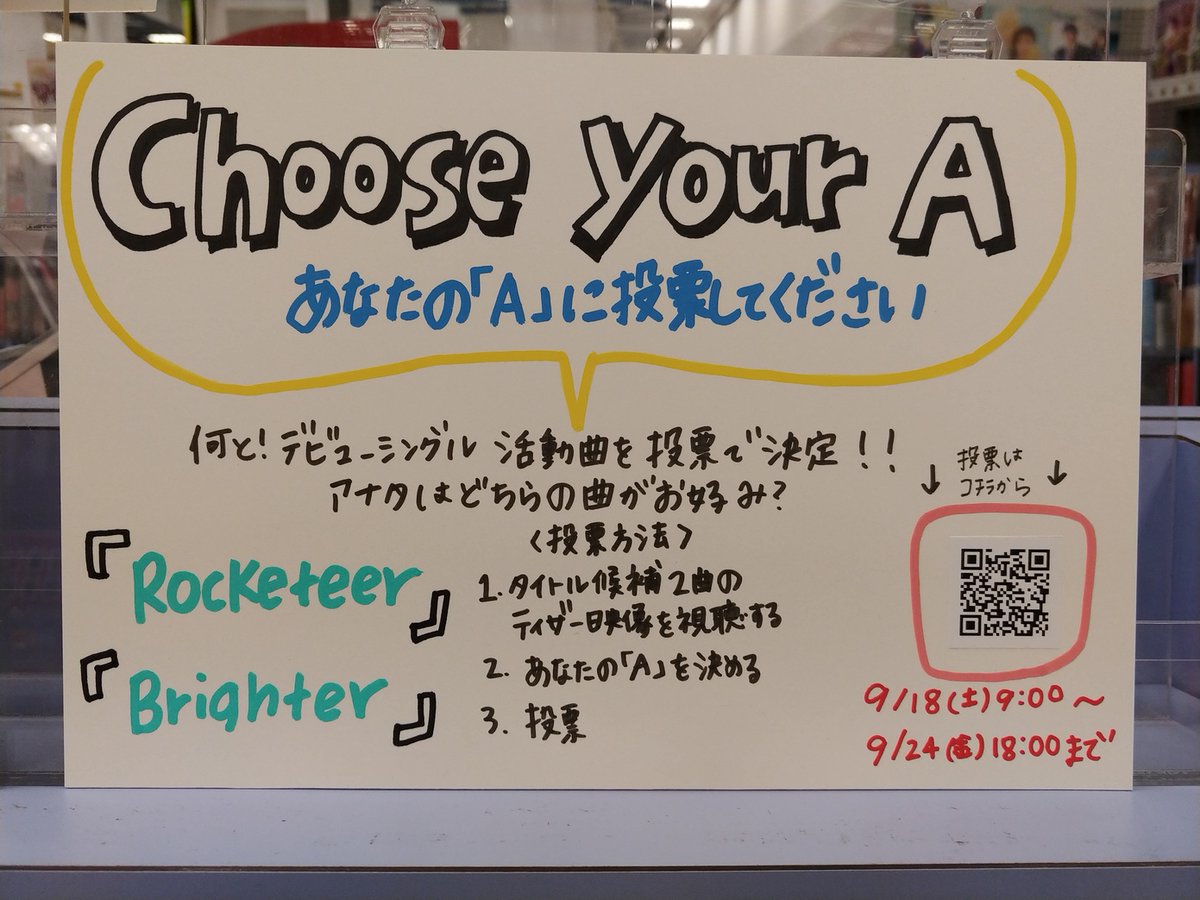 Choose your A
あなたの「A」に投票してください
何と!デビューシングル 活動曲を投票で決定!!
アナタはどちらの曲がお好み?
『Rocketeer』
『Brighter』
<投票方法>
1.タイトル候補2曲の
ティザー映像を視聴する
2.あなたの「A」を決める
3.投票
↓投票は↓
コチラから
9/18(土)9:00～
9/24(金)18:00まで